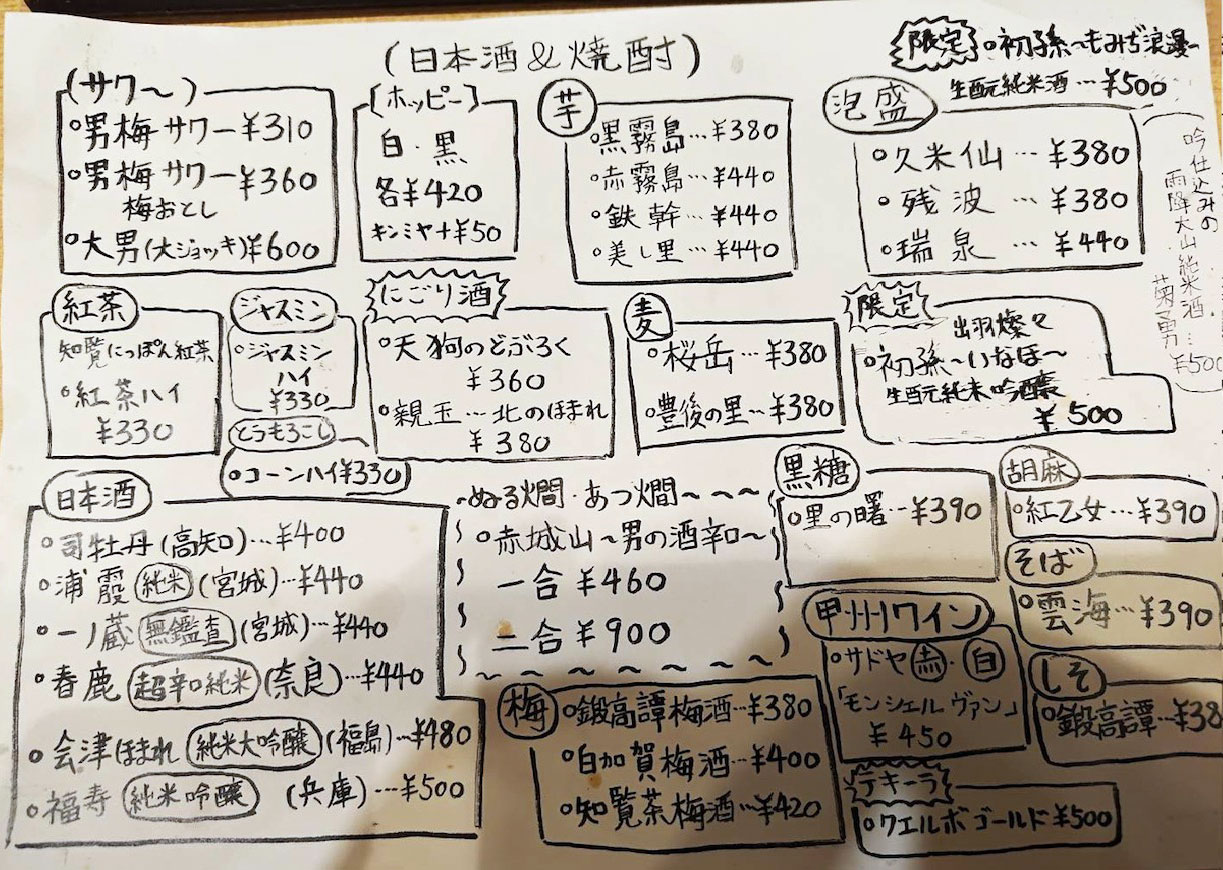 (日本酒&焼酎)
限定 ○初孫~もみぢ浪漫~
生酛純米酒…¥500
(サワ~)
○男梅サワー¥310
○男梅サワー¥360
梅おとし
○大男(大ジョッキ)¥600
[ホッピー]
白・黒
各¥420
キンミヤ+¥50
芋
○黒霧島…¥380
○赤霧島…¥440
○鉄幹…¥440
○美し里…¥440
泡盛
○久米仙…¥380
○残波…¥380
○瑞泉…¥440
吟仕込みの
雨降大山純米酒…
菊勇
¥500
紅茶
知覧にっぽん紅茶
○紅茶ハイ
¥330
ジャスミン
○ジャスミン
ハイ
¥330
とうもろこし
○コーンハイ¥330
にごり酒
○天狗のどぶろく
¥360
○親玉…北のほまれ
¥380
麦
○桜岳…¥380
○豊後の里…¥380
限定
出羽燦々
○初孫~いなほ~
生酛純米吟醸
¥500
日本酒
○司牡丹(高知)…¥400
○浦霞 純米 (宮城)…¥440
○一ノ蔵 無鑑査 (宮城)…¥440
○春鹿 超辛口純米 (奈良)…¥440
○会津ほまれ 純米大吟醸 (福島)…¥480
○福寿 純米吟醸 (兵庫)…¥500
~ぬる燗・あつ燗~~~
○赤城山~男の酒辛口~
一合¥460
二合¥900
黒糖
○里の曙…¥390
胡麻
○紅乙女…¥390
そば
○雲海…¥390
甲州ワイン
○サドヤ 赤・白
「モンシェルヴァン」
¥450
しそ
○鍛高譚…¥38
梅
○鍛高譚梅酒…¥380
○白加賀梅酒…¥400
○知覧茶梅酒…¥420
テキーラ
○クエルボゴールド¥500